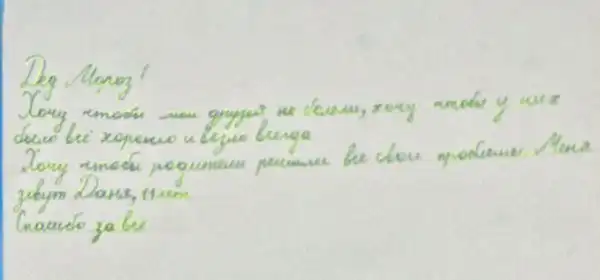 Дед Мороз!
Хочу чтобы мои друзья не болели, хочу чтобы у них
было всё хорошо и везло всегда
Хочу чтобы родители решили все свои проблемы. Меня
зовут Даня, 11 лет
Спасибо за всё